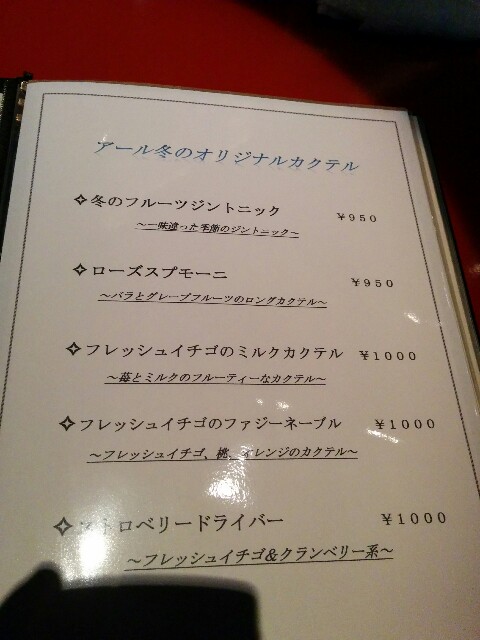 アール冬のオリジナルカクテル
✧冬のフルーツジントニック ￥950
～一味違った季節のジントニック～
✧ローズスプモーニ ￥950
～バラとグレープフルーツのロングカクテル～
✧フレッシュイチゴのミルクカクテル ￥1000
～苺とミルクのフルーティーなカクテル～
✧フレッシュイチゴのファジーネーブル ￥1000
～フレッシュイチゴ、桃、オレンジのカクテル～
✧ストロベリードライバー ￥1000
～フレッシュイチゴ&クランベリー系～